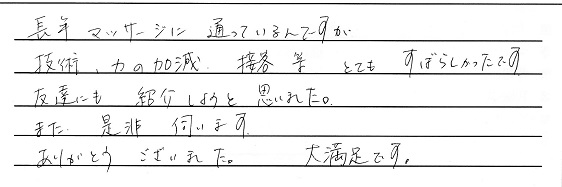 長年 マッサージに 通っているんですが
技術、力の加減 接客 等 とても すばらしかったです
友達にも 紹介しようと 思いました。
また 是非 伺います
ありがとう ございました。 大満足です。